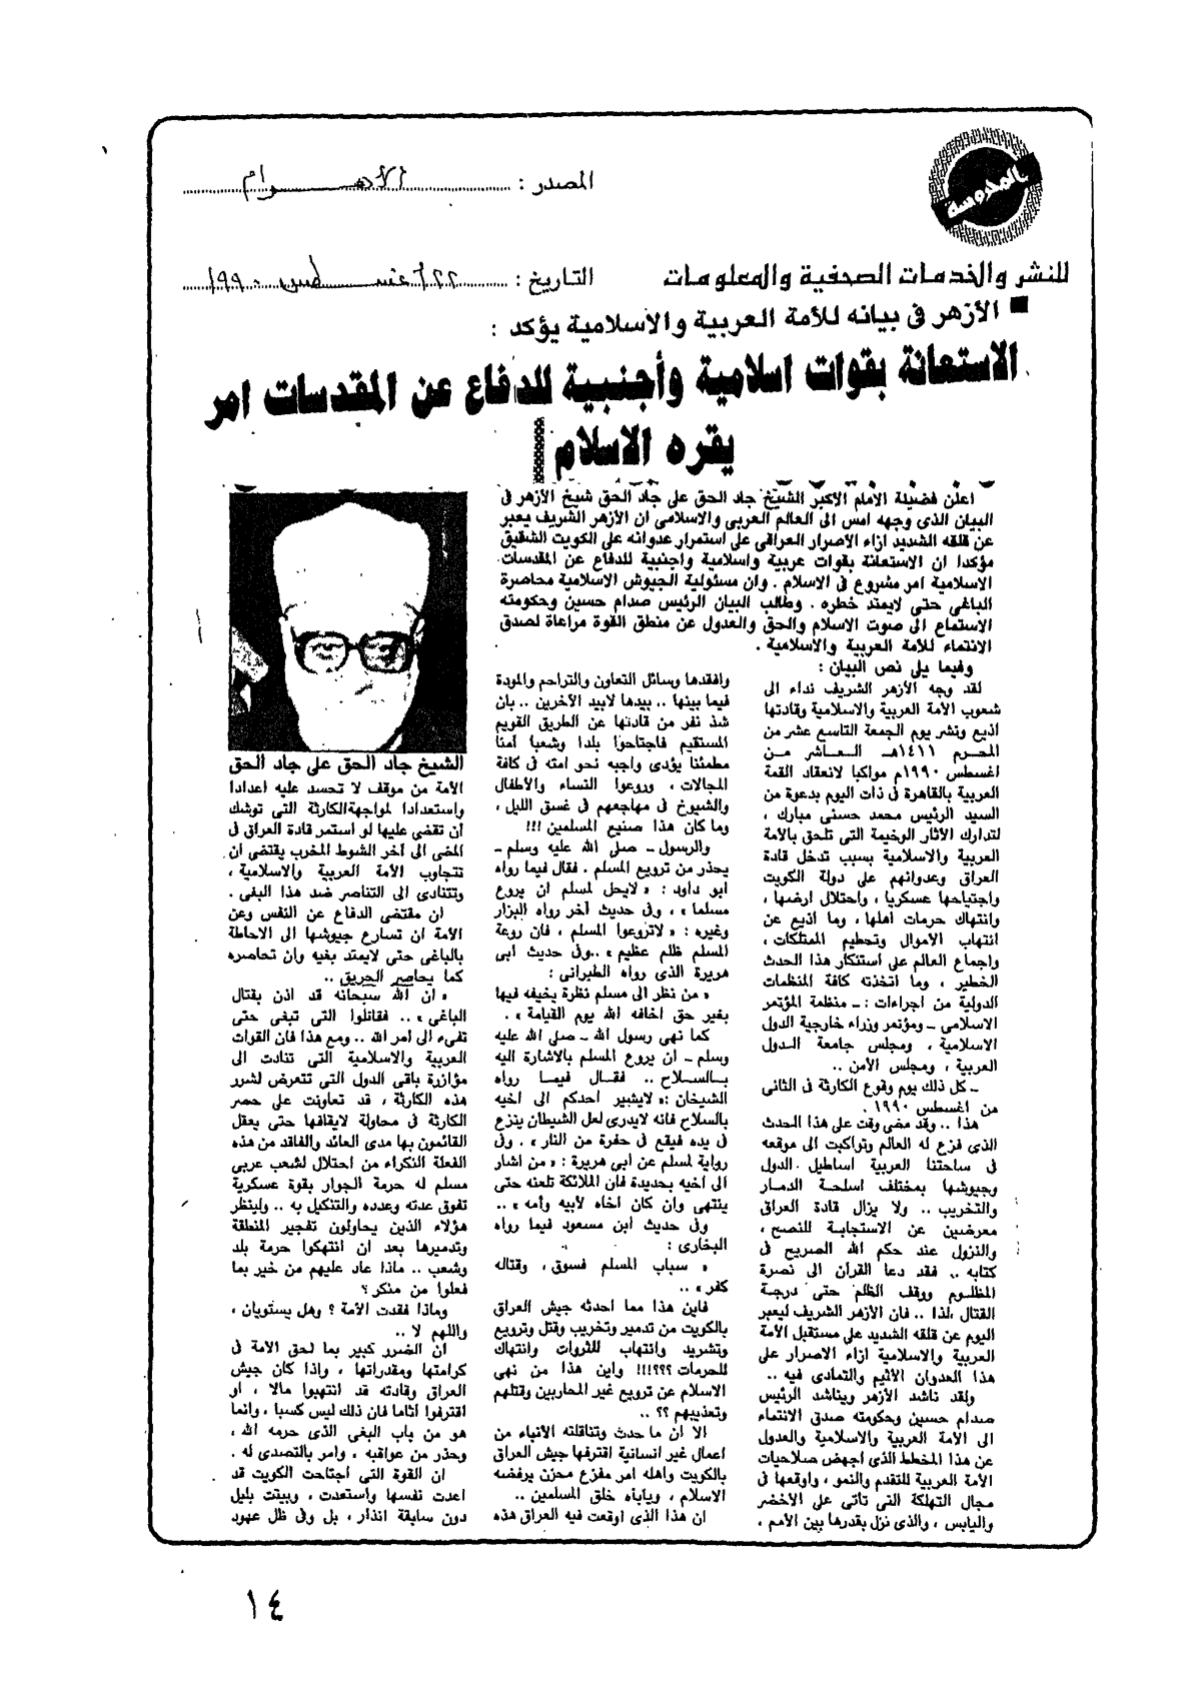 المحروسة
المصدر : الأهـــرام
للنشر والخدمات الصحفية والمعلومات
التاريخ : ٢٢ أغسطس ١٩٩٠
■ الأزهر فى بيانه للأمة العربية والاسلامية يؤكد :
الاستعانة بقوات اسلامية وأجنبية للدفاع عن المقدسات امر
يقره الاسلام
اعلن فضيلة الامام الاكبر الشيخ جاد الحق على جاد الحق شيخ الأزهر فى
البيان الذى وجهه امس الى العالم العربى والاسلامى ان الأزهر الشريف يعبر
عن قلقه الشديد ازاء الاصرار العراقى على استمرار عدوانه على الكويت الشقيق
مؤكدا ان الاستعانة بقوات عربية واسلامية واجنبية للدفاع عن المقدسات
الاسلامية امر مشروع فى الاسلام . وان مسئولية الجيوش الاسلامية محاصرة
الباغى حتى لايمتد خطره . وطالب البيان الرئيس صدام حسين وحكومته
الاستماع الى صوت الاسلام والحق والعدول عن منطق القوة مراعاة لصدق
الانتماء للأمة العربية والاسلامية .
وفيما يلى نص البيان :
لقد وجه الأزهر الشريف نداء الى
شعوب الأمة العربية والاسلامية وقادتها
اذيع ونشر يوم الجمعة التاسع عشر من
المحرم ١٤١١هـ العـاشر مـن
اغسطس ١٩٩٠م مواكبا لانعقاد القمة
العربية بالقاهرة فى ذات اليوم بدعوة من
السيد الرئيس محمد حسنى مبارك ،
لتدارك الآثار الوخيمة التى تلحق بالأمة
العربية والاسلامية بسبب تدخل قادة
العراق وعدوانهم على دولة الكويت
واجتياحها عسكريا ، واحتلال ارضها ،
وانتهاك حرمات اهلها ، وما اذيع عن
انتهاب الأموال وتحطيم الممتلكات ،
واجماع العالم على استنكار هذا الحدث
الخطير ، وما اتخذته كافة المنظمات
الدولية من اجراءات : ـ منظمة المؤتمر
الاسلامى ـ ومؤتمر وزراء خارجية الدول
الاسلامية ، ومجلس جامعة الدول
العربية ، ومجلس الأمن ..
ـ كل ذلك يوم وقوع الكارثة فى الثانى
من اغسطس ١٩٩٠ .
هذا .. وقد مضى وقت على هذا الحدث
الذى فزع له العالم وتواكبت الى موقعه
فى ساحتنا العربية اساطيل الدول
وجيوشها بمختلف اسلحة الدمار
والتخريب .. ولا يزال قادة العراق
معرضين عن الاستجابة للنصح ،
والنزول عند حكم الله الصريح فى
كتابه .. فقد دعا القرآن الى نصرة
المظلوم ووقف الظلم حتى درجة
القتال ،لذا .. فان الأزهر الشريف ليعبر
اليوم عن قلقه الشديد على مستقبل الأمة
العربية والاسلامية ازاء الاصرار على
هذا العدوان الأثيم والتمادى فيه ..
ولقد ناشد الأزهر ويناشد الرئيس
صدام حسين وحكومته صدق الانتماء
الى الأمة العربية والاسلامية والعدول
عن هذا المخطط الذى اجهض صلاحيات
الأمة العربية للتقدم والنمو ، واوقعها فى
مجال التهلكة التى تأتى على الأخضر
واليابس ، والذى نزل بقدرها بين الأمم ،
وافقدها وسائل التعاون والتراحم والمودة
فيما بينها .. بيدها لابيد الآخرين .. بان
شذ نفر من قادتها عن الطريق القويم
المستقيم فاجتاحوا بلدا وشعبا آمنا
مطمئنا يؤدى واجبه نحو امته فى كافة
المجالات ، وروعوا النساء والأطفال
والشيوخ فى مهاجعهم فى غسق الليل ،
وما كان هذا صنيع المسلمين !!!
والرسول ـ صلى الله عليه وسلم ـ
يحذر من ترويع المسلم . فقال فيما رواه
ابو داود : « لايحل لمسلم ان يروع
مسلما » ، وفى حديث آخر رواه البزار
وغيره : « لاتروعوا المسلم ، فان روعة
المسلم ظلم عظيم » ..وفى حديث ابى
هريرة الذى رواه الطبرانى :
« من نظر الى مسلم نظرة يخيفه فيها
بغير حق اخافه الله يوم القيامة » .
كما نهى رسول الله ـ صلى الله عليه
وسلم ـ ان يروع المسلم بالاشارة اليه
بـالسـلاح .. فقـال فيمـا رواه
الشيخان :« لايشير احدكم الى اخيه
بالسلاح فانه لايدرى لعل الشيطان ينزع
فى يده فيقع فى حفرة من النار » . وفى
رواية لمسلم عن ابى هريرة : « من اشار
الى اخيه بحديدة فان الملائكة تلعنه حتى
ينتهى وان كان اخاه لأبيه وأمه » ..
وفى حديث ابن مسعود فيما رواه
البخارى :
« سباب المسلم فسوق ، وقتاله
كفر » ..
فاين هذا مما احدثه جيش العراق
بالكويت من تدمير وتخريب وقتل وترويع
وتشريد وانتهاب للثروات وانتهاك
للحرمات ؟؟؟!!! واين هذا من نهى
الاسلام عن ترويع غير المحاربين وقتلهم
وتعذيبهم ؟؟ ..
الا ان ما حدث وتناقلته الأنباء من
اعمال غير انسانية اقترفها جيش العراق
بالكويت واهله امر مفزع محزن يرفضه
الاسلام ، ويأباه خلق المسلمين ..
ان هذا الذى اوقعت فيه العراق هذه
الشيخ جاد الحق على جاد الحق
الأمة من موقف لا تحسد عليه اعدادا
واستعدادا لمواجهة الكارثة التى توشك
ان تقضى عليها لو استمر قادة العراق فى
المضى الى آخر الشوط المخرب يقتضى ان
تتجاوب الأمة العربية والاسلامية ،
وتتنادى الى التناصر ضد هذا البغى .
ان مقتضى الدفاع عن النفس وعن
الأمة ان تسارع جيوشها الى الاحاطة
بالباغى حتى لايمتد بغيه وان تحاصره
كما يحاصر الحريق ..
« ان الله سبحانه قد اذن بقتال
الباغى » .. فقاتلوا التى تبغى حتى
تفىء الى امر الله .. ومع هذا فان القوات
العربية والاسلامية التى تنادت الى
مؤازرة باقى الدول التى تتعرض لشرر
هذه الكارثة ، قد تعاونت على حصر
الكارثة فى محاولة لايقافها حتى يعقل
القائمون بها مدى العائد والفاقد من هذه
الفعلة النكراء من احتلال لشعب عربى
مسلم له حرمة الجوار بقوة عسكرية
تفوق عدته وعدده والتنكيل به .. ولينظر
هؤلاء الذين يحاولون تفجير المنطقة
وتدميرها بعد ان انتهكوا حرمة بلد
وشعب .. ماذا عاد عليهم من خير بما
فعلوا من منكر ؟
وماذا فقدت الأمة ؟ وهل يستويان ،
واللهم لا ..
ان الضرر كبير بما لحق الأمة فى
كرامتها ومقدراتها ، واذا كان جيش
العراق وقادته قد انتهبوا مالا ، او
اقترفوا آثاما فان ذلك ليس كسبا ، وانما
هو من باب البغى الذى حرمه الله ،
وحذر من عواقبه ، وامر بالتصدى له .
ان القوة التى اجتاحت الكويت قد
اعدت نفسها واستعدت ، وبيتت بليل
دون سابقة انذار ، بل وفى ظل عهود
١٤